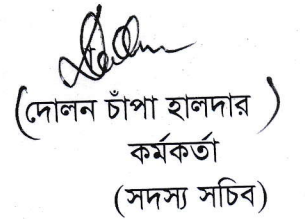 (দোলন চাঁপা হালদার)
কর্মকর্তা
(সদস্য সচিব)